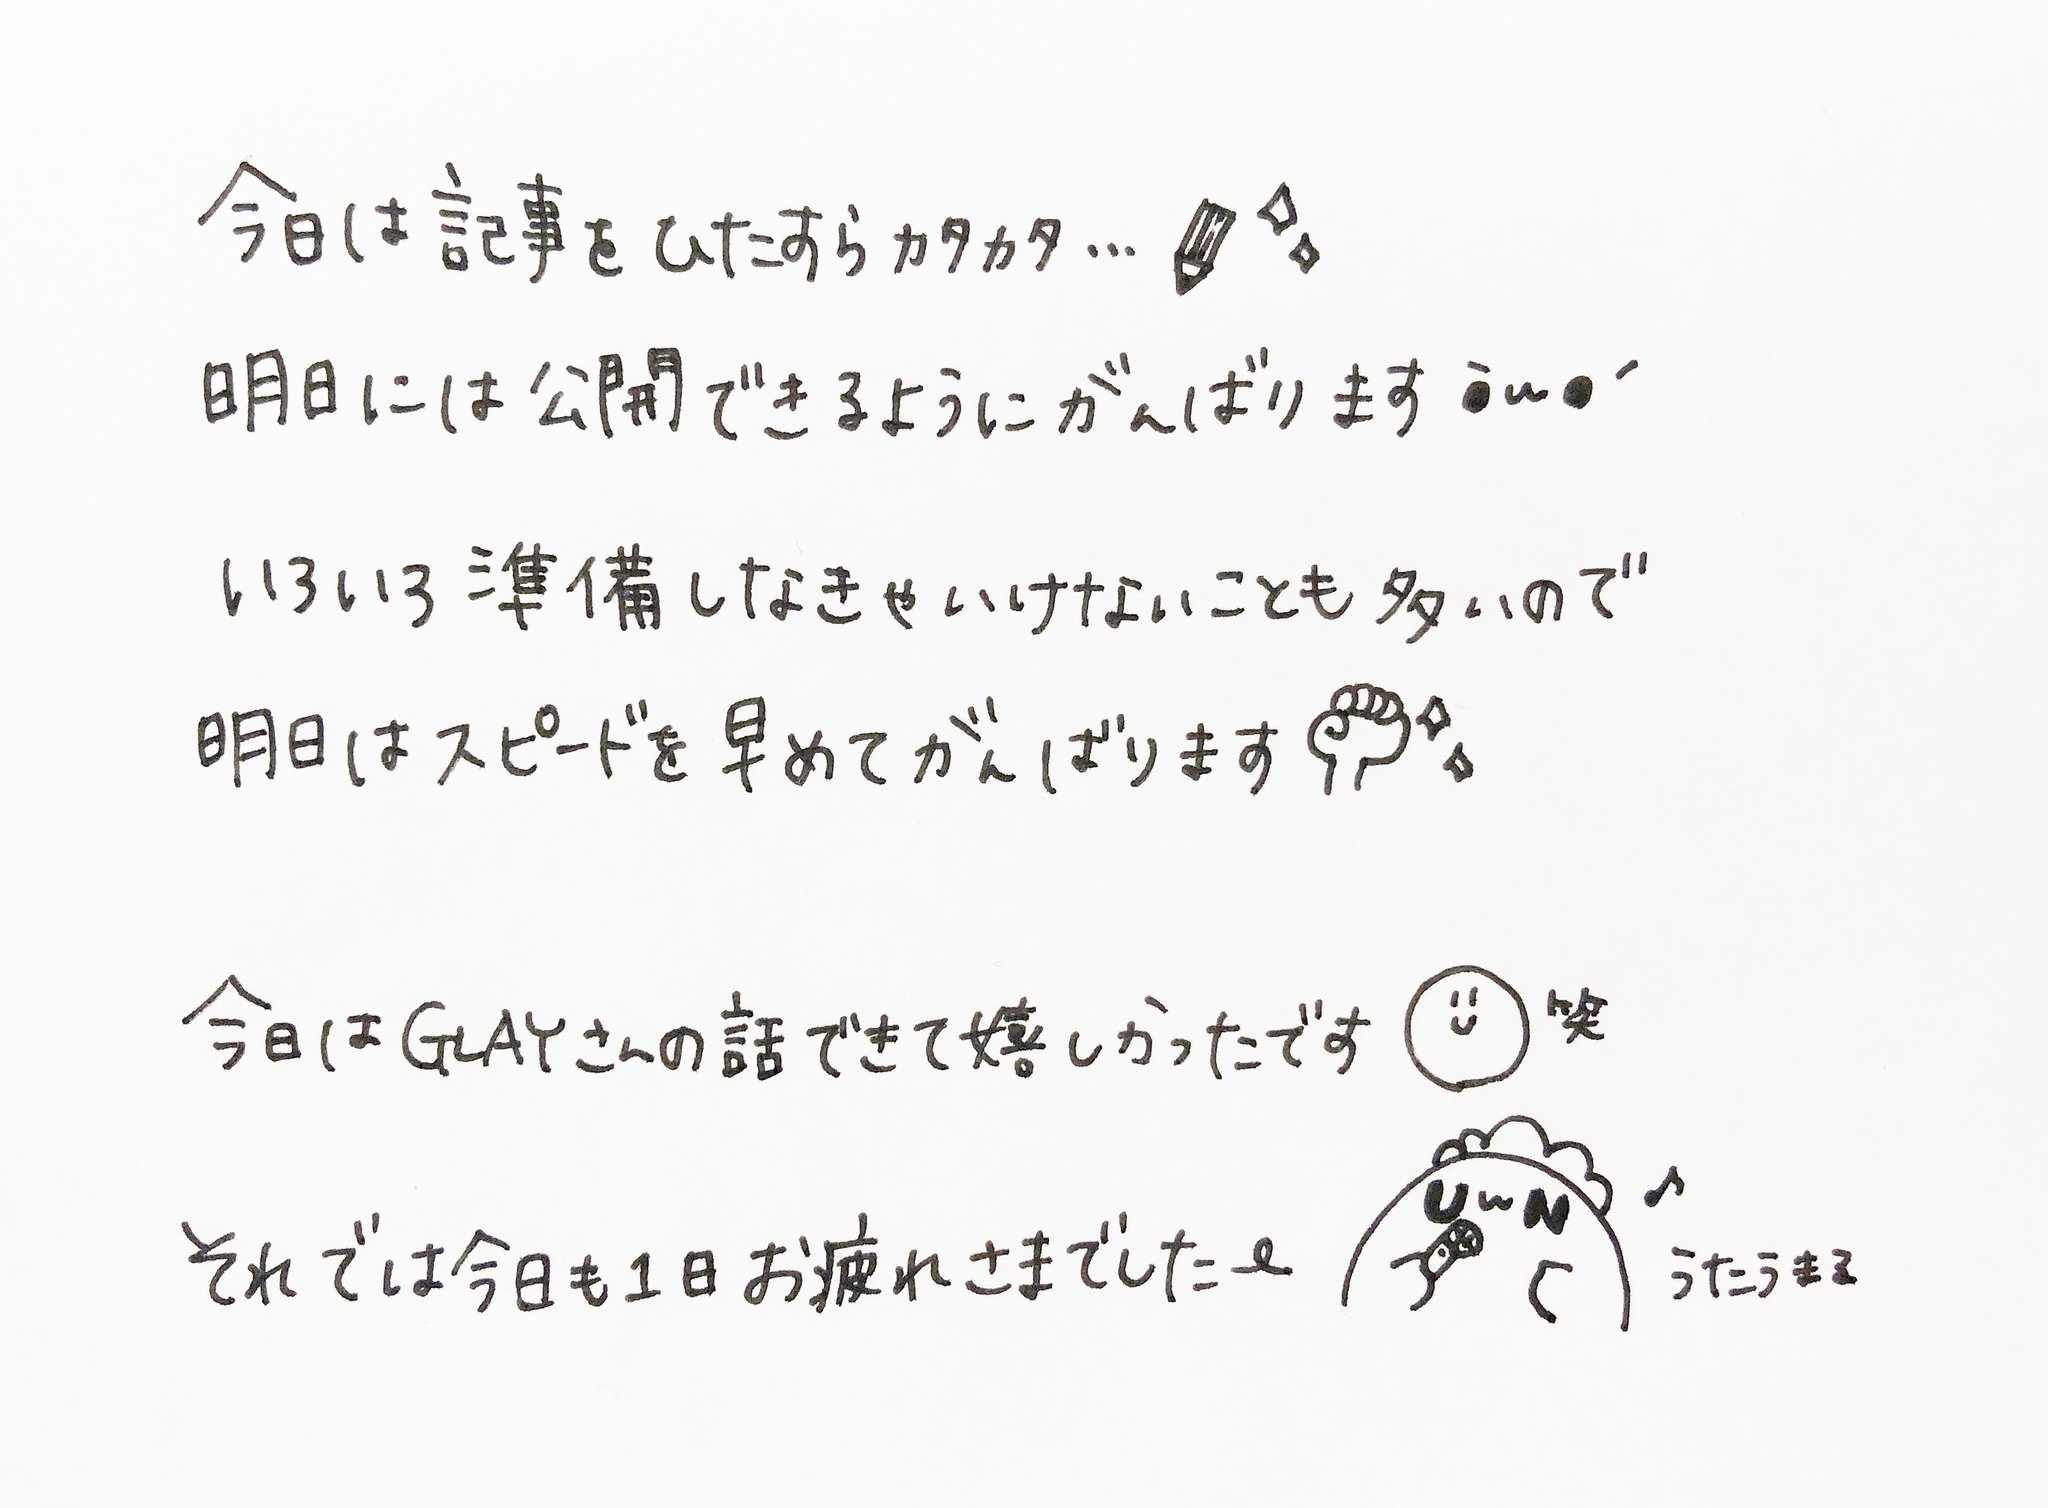 今日は記事をひたすらカタカタ…
明日には公開できるようにがんばります
いろいろ準備しなきゃいけないことも多いので
明日はスピードを早めてがんばります
今日はGLAYさんの話できて嬉しかったです 笑
それでは今日も1日お疲れさまでしたー
うたうまる